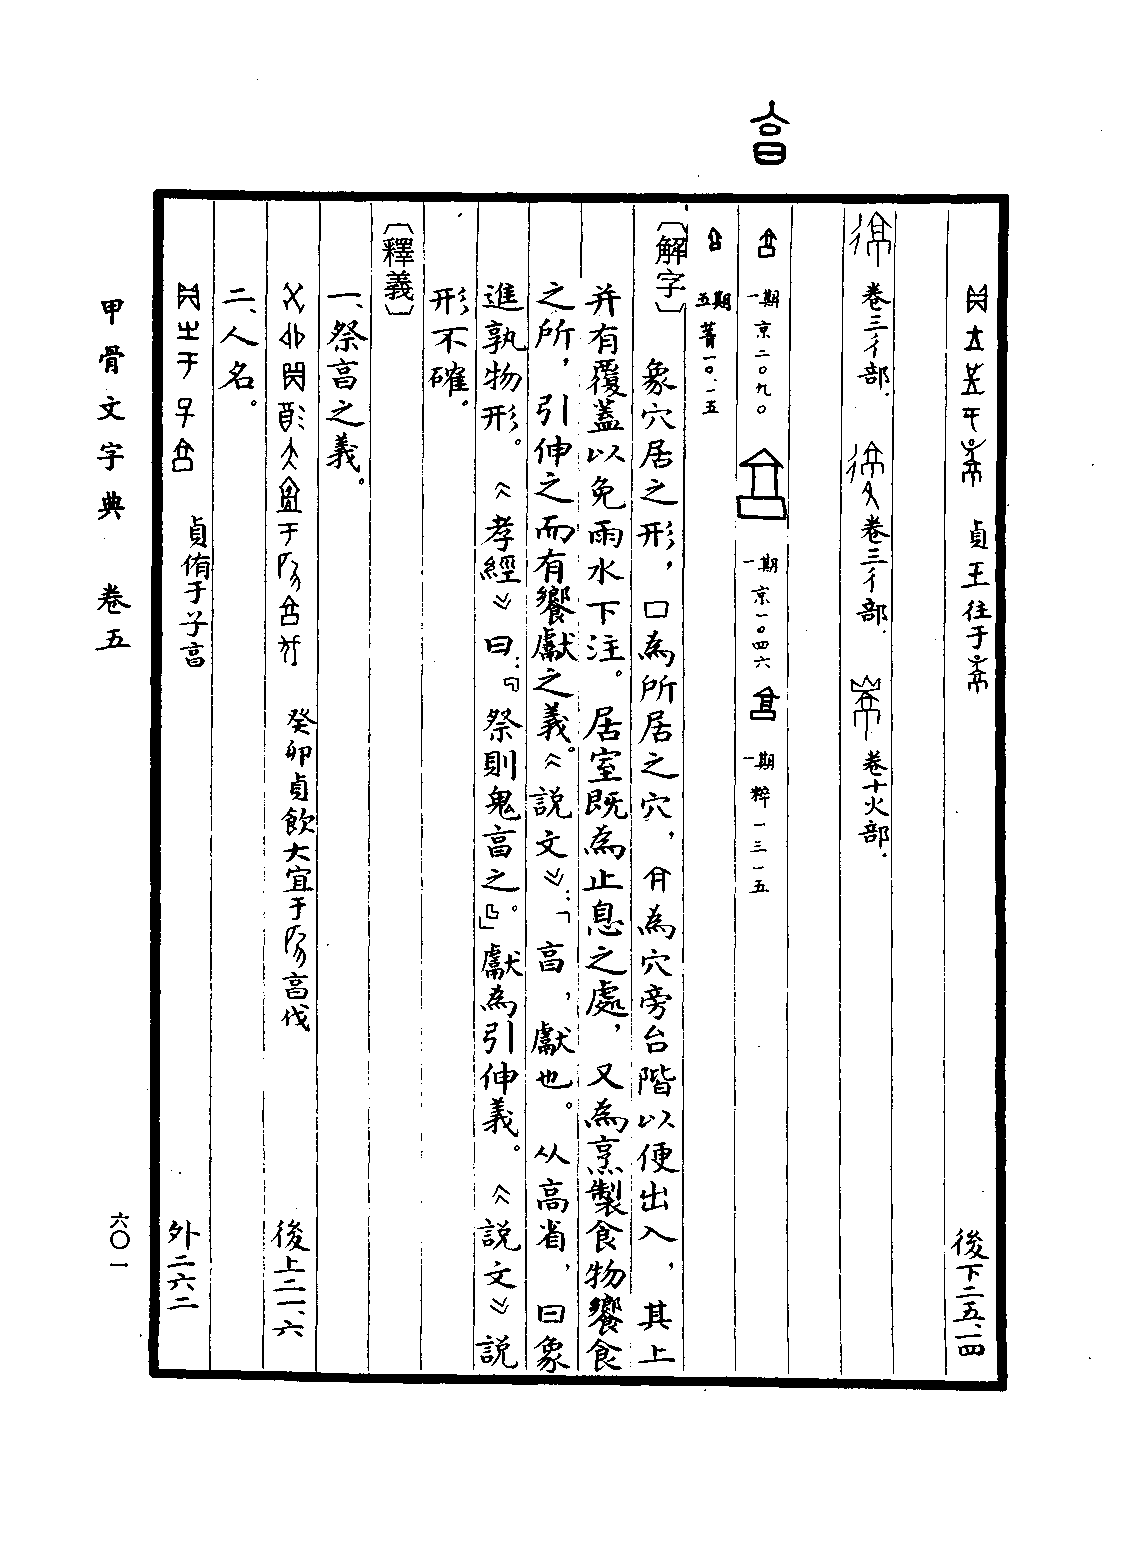 貞王往于
後下二五.一四
卷三彳部.
卷三彳部.
卷十火部.
亯
一期 京二〇九〇
一期 京一〇四六
一期 粹一三一五
五期 菁一〇.一五
〔解字〕
象穴居之形，口為所居之穴，為穴旁台階以便出入，其上
并有覆蓋以免雨水下注。居室既為止息之處，又為烹製食物饗食
之所，引伸之而有饗獻之義。《説文》：「亯，獻也。从高省，曰象
進孰物形。《孝經》曰：『祭則鬼亯之。』」獻為引伸義。《説文》説
形不確。
〔釋義〕
一、祭亯之義。
癸卯貞飲大宜于亯伐
後上二一.六
二、人名。
貞侑于子亯
外二六二
甲骨文字典 卷五
六〇一